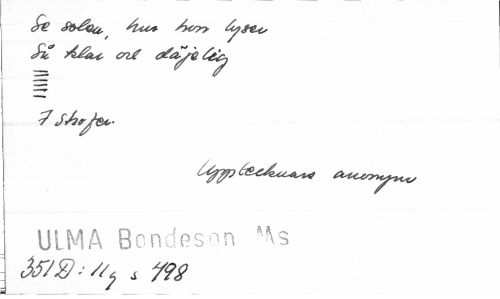 Se solen, hur hon lyser
Så klar och däjelig
7 strofer.
Upptecknare anonym
ULMA Bondeson Ms
351 D: 11 q s 498